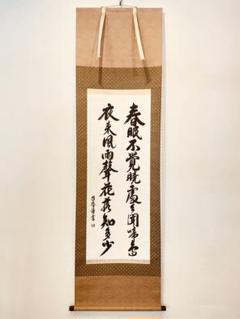 春眠不覺曉處々聞啼鳥
夜来風雨聲花落知多少